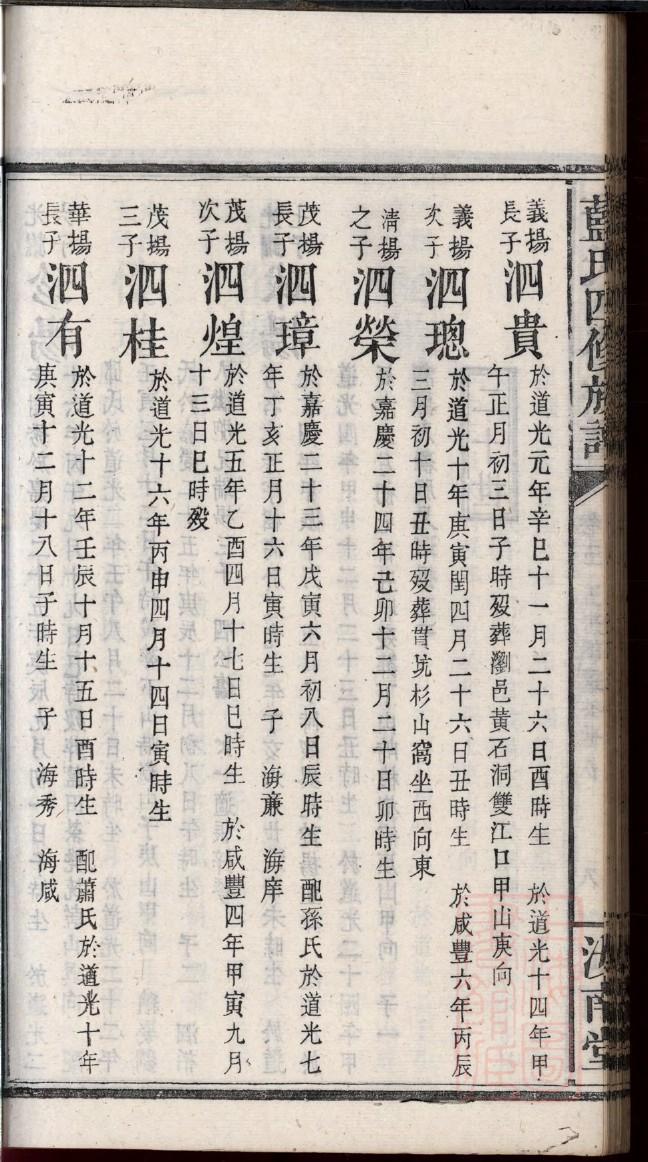 藍氏四修族譜
汝南堂
義揚長子 泗貴 於道光元年辛巳十一月二十六日酉時生 於道光十四年甲
午正月初三日子時歿葬瀏邑黃石洞雙江口甲山庚向
義揚次子 泗璁 於道光十年庚寅閏四月二十六日丑時生 於咸豐六年丙辰
三月初十日丑時歿葬貫坑杉山窩坐西向東
清揚之子 泗榮 於嘉慶二十四年己卯十二月二十日卯時生
茂揚長子 泗璋 於嘉慶二十三年戊寅六月初八日辰時生 配孫氏於道光七
年丁亥正月十六日寅時生 子 海亷 海庠
茂揚次子 泗煌 於道光五年乙酉四月十七日巳時生 於咸豐四年甲寅九月
十三日巳時歿
茂揚三子 泗桂 於道光十六年丙申四月十四日寅時生
華揚長子 泗有 於道光十二年壬辰十月十五日酉時生 配蕭氏於道光十年
庚寅十二月十八日子時生 子 海秀 海咸